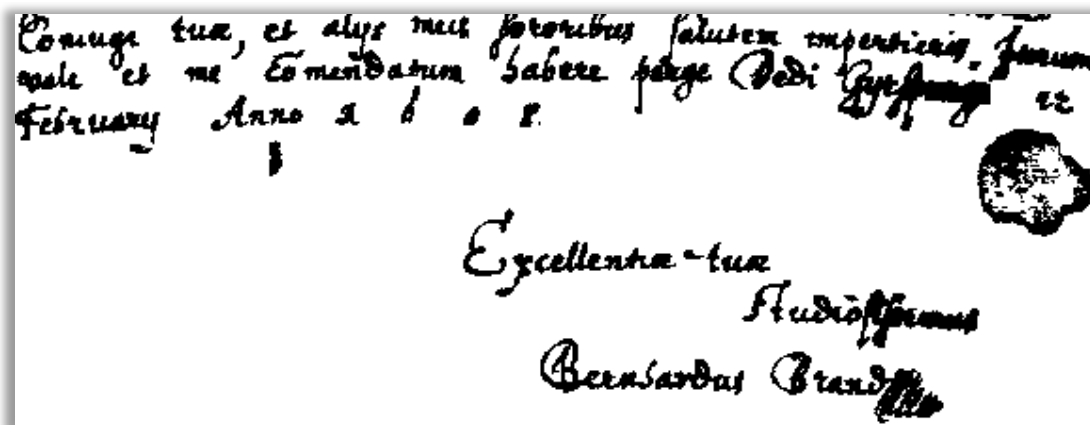 Coniugi tuæ, et alijs meis sororibus salutem impertieris.
vale et me Comendatum habere perge Dedi
February Anno 1 6 0 8.
Excellentiæ tuæ
Studiosissimus
Bernhardus Brand